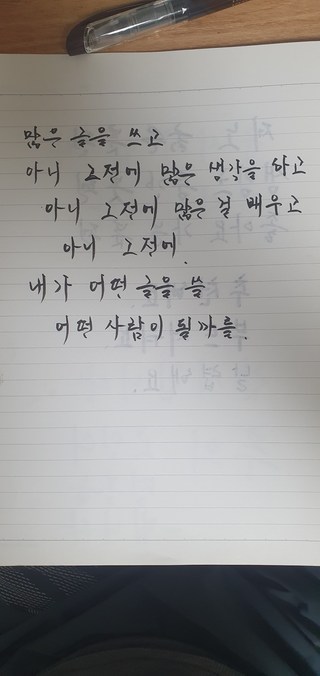 많은 글을 쓰고
아니 그전에 많은 생각을 하고
아니 그전에 많은 걸 배우고
아니 그전에.
내가 어떤 글을 쓸
어떤 사람이 될까를.